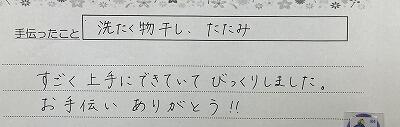 手伝ったこと 洗たく物干し、たたみ
すごく上手にできていてびっくりしました。
お手伝いありがとう!!